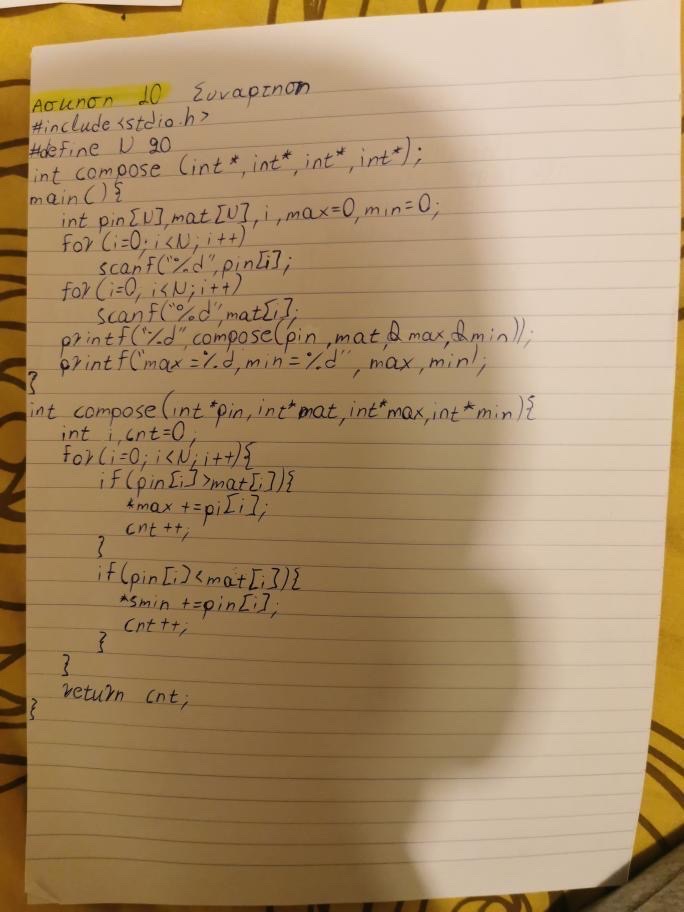 Ασκηση 10 Συναρτηση
#include <stdio.h>
#define N 20
int compose (int*, int*, int*, int*);
main(){
int pin[N], mat[N], i, max=0, min=0;
for (i=0; i<N; i++)
scanf("%d", pin[i];
for (i=0, i<N; i++)
scanf("%d", mat[i];
printf("%d", compose(pin, mat, &max, &min));
printf("max = %d, min = %d", max, min);
}
int compose(int *pin, int* mat, int* max, int* min){
int i, cnt=0;
for(i=0; i<N; i++){
if(pin[i]>mat[i]){
*max +=pi[i];
cnt ++;
}
if(pin[i]<mat[i]){
*smin +=pin[i];
cnt++;
}
}
return cnt;
}